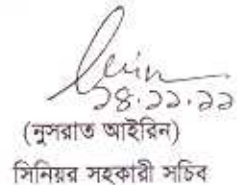 ২৪.১১.১১
(নুসরাত আইরিন)
সিনিয়র সহকারী সচিব